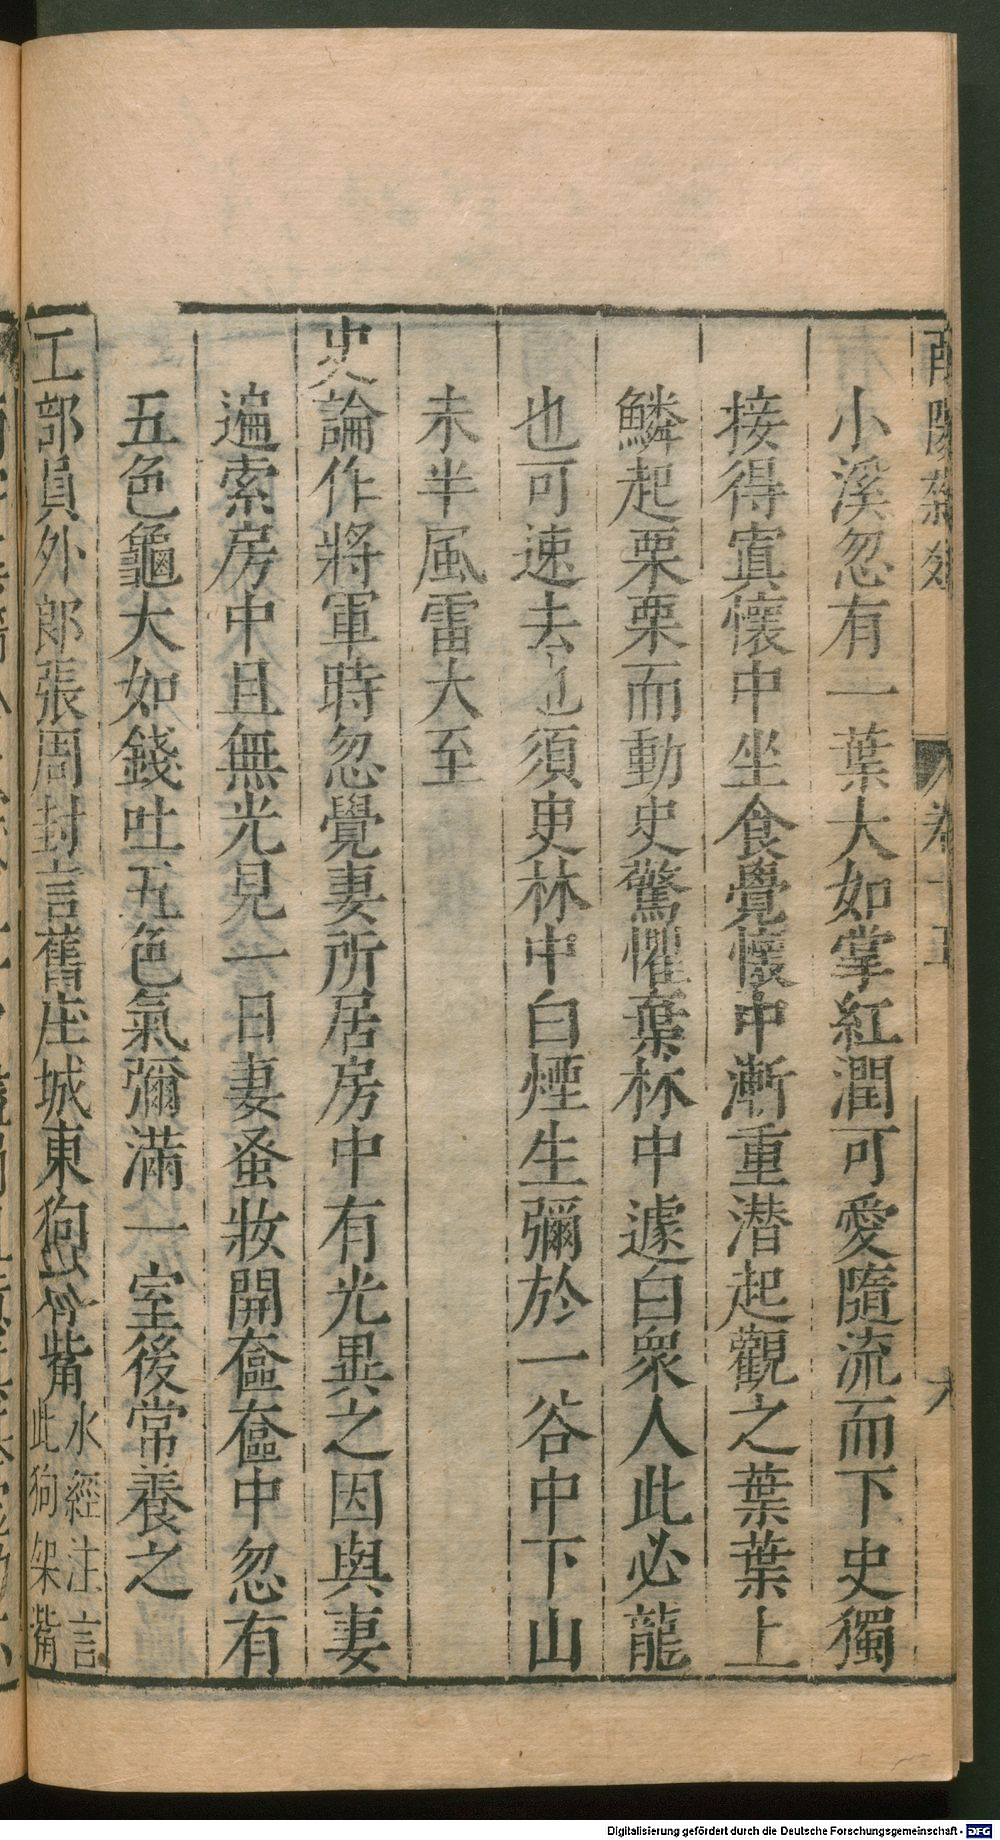 酉陽雜俎 卷十五 六
小溪忽有一葉大如掌紅潤可愛隨流而下史獨
接得寘懷中坐食覺懷中漸重潛起觀之葉葉上
鱗起栗栗而動史驚懼棄林中遽白衆人此必龍
也可速去也須叓林中白煙生彌於一谷中下山
未半風雷大至
史論作將軍時忽覺妻所居房中有光異之因與妻
遍索房中且無光見一日妻蚤妝開奩奩中忽有
五色龜大如錢吐五色氣彌滿一室後常養之
工部員外郎張周封言舊座城東狗脊觜
水經注言
此狗架觜
Digitalisierung gefördert durch die Deutsche Forschungsgemeinschaft - DFG